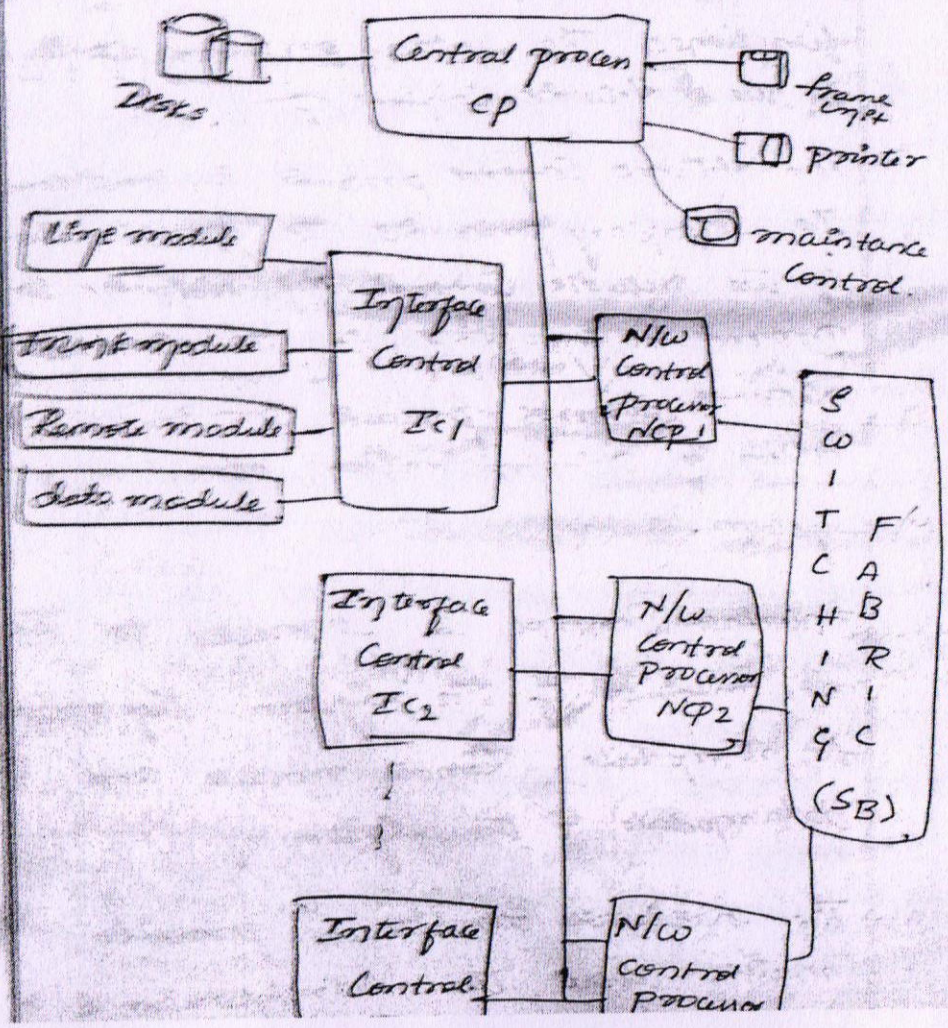 Central procen
CP
Disks
printer
maintance
Control
Line module
Trunk module
Remote module
data module
Interface
Control
Ic1
N/W
Control
processor
NCP1
SWITCHING
FABRIC
(SB)
Interface
Control
Ic2
N/W
Control
processor
NCP2
Interface
Control
N/W
Control
processor